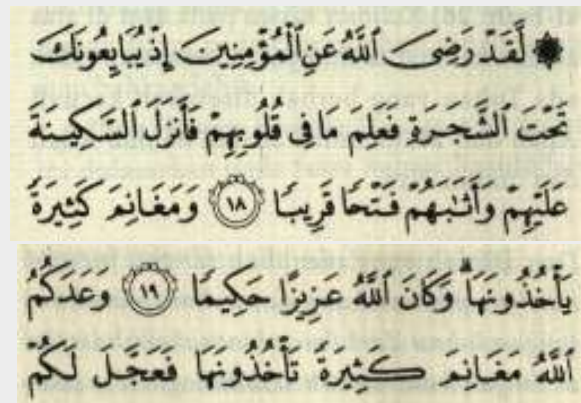 ۞ لَّقَدْ رَضِىَ ٱللَّهُ عَنِ ٱلْمُؤْمِنِينَ إِذْ يُبَايِعُونَكَ
تَحْتَ ٱلشَّجَرَةِ فَعَلِمَ مَا فِى قُلُوبِهِمْ فَأَنزَلَ ٱلسَّكِينَةَ
عَلَيْهِمْ وَأَثَـٰبَهُمْ فَتْحًا قَرِيبًا ١٨ وَمَغَانِمَ كَثِيرَةً
يَأْخُذُونَهَا ۗ وَكَانَ ٱللَّهُ عَزِيزًا حَكِيمًا ١٩ وَعَدَكُمُ
ٱللَّهُ مَغَانِمَ كَثِيرَةً تَأْخُذُونَهَا فَعَجَّلَ لَكُمْ